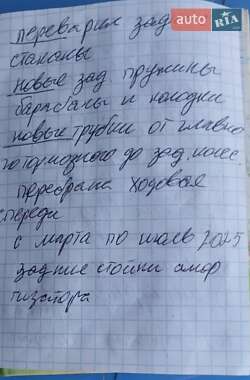 auto RIA.com
переварин зад
стаканы
новые зад пружины
барабаны и колодки
новые трубки от главно
го тормозного до зад. колес
перебрана ходовая
спереди
с марта по июль 2025
задние стойки амор
тизатора